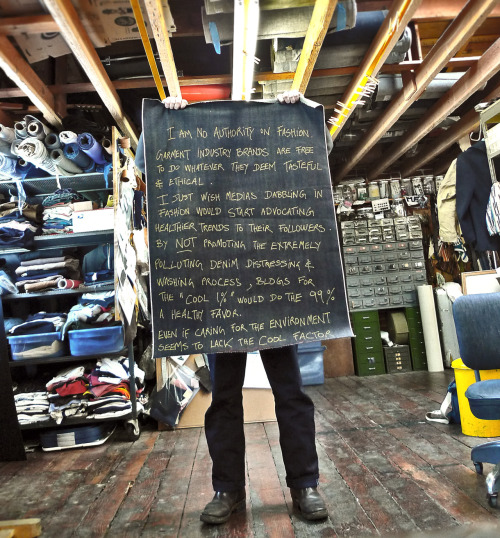 I AM NO AUTHORITY ON FASHION.
GARMENT INDUSTRY BRANDS ARE FREE
TO DO WHATEVER THEY DEEM TASTEFUL
& ETHICAL.
I JUST WISH MEDIAS DABBLING IN
FASHION WOULD START ADVOCATING
HEALTHIER TRENDS TO THEIR FOLLOWERS.
BY NOT PROMOTING THE EXTREMELY
POLLUTING DENIM DISTRESSING &
WASHING PROCESS, BLOGS FOR
THE "COOL 1%" WOULD DO THE 99%
A HEALTHY FAVOR.
EVEN IF CARING FOR THE ENVIRONMENT
SEEMS TO LACK THE COOL FACTOR